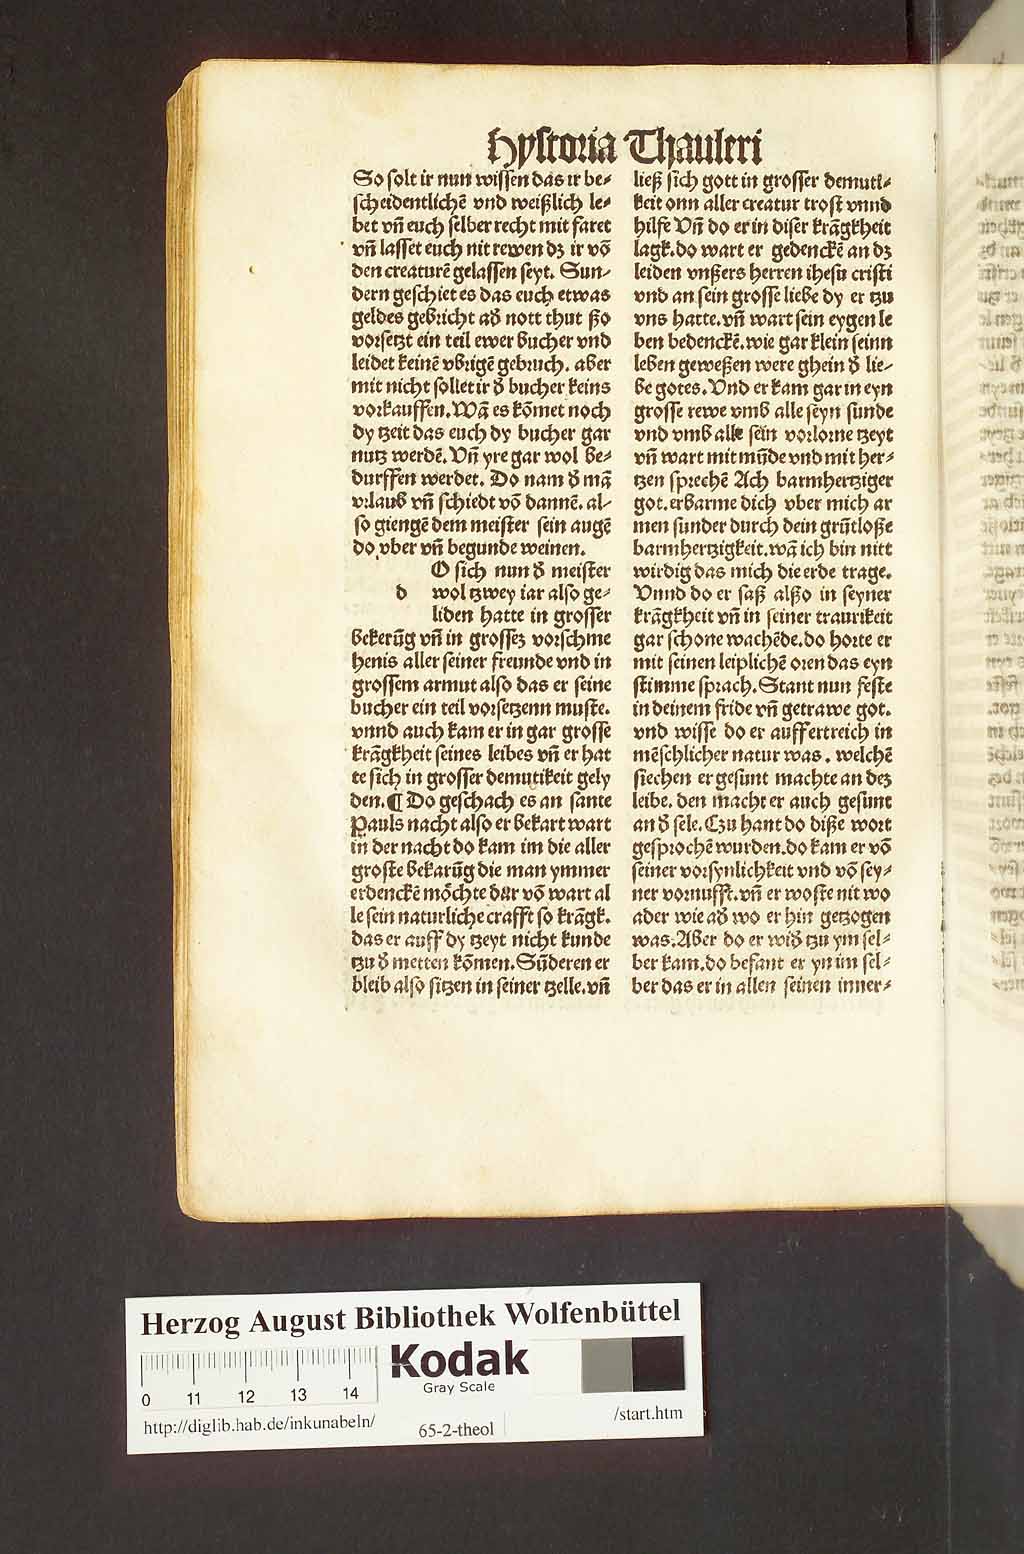 Hystoria Thauleri
So solt ir nun wissen das ir be⸗
scheidentlichē vnd weißlich le⸗
bet vn̄ euch selber recht mit faret
vn̄ lasset euch nit rewen dz ir vō
den creaturē gelassen seyt. Sun⸗
dern geschiet es das euch etwas
geldes gebricht ad̄ nott thut ßo
vorsetzt ein teil ewer bucher vnd
leidet keinē vbrigē gebruch. aber
mit nicht sollet ir d̄ bucher keins
vorkauffen. Wā es kōmet noch
dy tzeit das euch dy bucher gar
nutz werdē. Vn̄ yre gar wol be⸗
durffen werdet. Do nam d̄ mā
vrlaub vn̄ schiedt vō dannē. al⸗
so giengē dem meister sein augē
do vber vn̄ begunde weinen.
O sich nun d̄ meister
d wol tzwey iar also ge⸗
liden hatte in grosser
bekerūg vn̄ in grossez vorschme
henis aller seiner freunde vnd in
grossem armut also das er seine
bucher ein teil vorsetzenn muste.
vnnd auch kam er in gar grosse
krāgkheit seines leibes vn̄ er hat
te sich in grosser demutikeit gely
den. ¶ Do geschach es an sante
Pauls nacht also er bekart wart
in der nacht do kam im die aller
groste bekarūg die man ymmer
erdenckē mōchte dar vō wart al
le sein naturliche crafft so krāgk.
das er auff dy tzeyt nicht kunde
tzu d̄ metten kōmen. Sūderen er
bleib also sitzen in seiner tzelle. vn̄
ließ sich gott in grosser demuti⸗
keit onn aller creatur trost vnnd
hilfe Vn̄ do er in diser krāgkheit
lagk. do wart er gedenckē an dz
leiden vnßers herren ihesu cristi
vnd an sein grosse liebe dy er tzu
vns hatte. vn̄ wart sein eygen le
ben bedenckē. wie gar klein seinn
leben geweßen were ghein d̄ lie⸗
be gotes. Vnd er kam gar in eyn
grosse rewe vmb alle seyn sunde
vnd vmb alle sein vorlorne tzeyt
vn̄ wart mit mūde vnd mit her⸗
tzen sprechē Ach barmhertziger
got. erbarme dich vber mich ar
men sunder durch dein grūtloße
barmhertzigkeit. wā ich bin nitt
wirdig das mich die erde trage.
Vnnd do er saß alßo in seyner
krāgkheit vn̄ in seiner traurikeit
gar schone wachēde. do horte er
mit seinen leiplichē oren das eyn
stimme sprach. Stant nun feste
in deinem fride vn̄ getrawe got.
vnd wisse do er auffertreich in
mēschlicher natur was. welchē
siechen er gesunt machte an dez
leibe. den macht er auch gesunt
an d̄ sele. Czu hant do diße wort
gesprochē wurden. do kam er vō
seiner vorsynlichkeit vnd vō sey⸗
ner vornufft. vn̄ er woste nit wo
ader wie ad̄ wo er hin getzogen
was. Aber do er wid̄ tzu ym sel⸗
ber kam. do befant er yn im sel⸗
ber das er in allen seinen inner⸗
Herzog August Bibliothek Wolfenbüttel
Kodak
Gray Scale
0 11 12 13 14
http://diglib.hab.de/inkunabeln/
65-2-theol
/start.htm